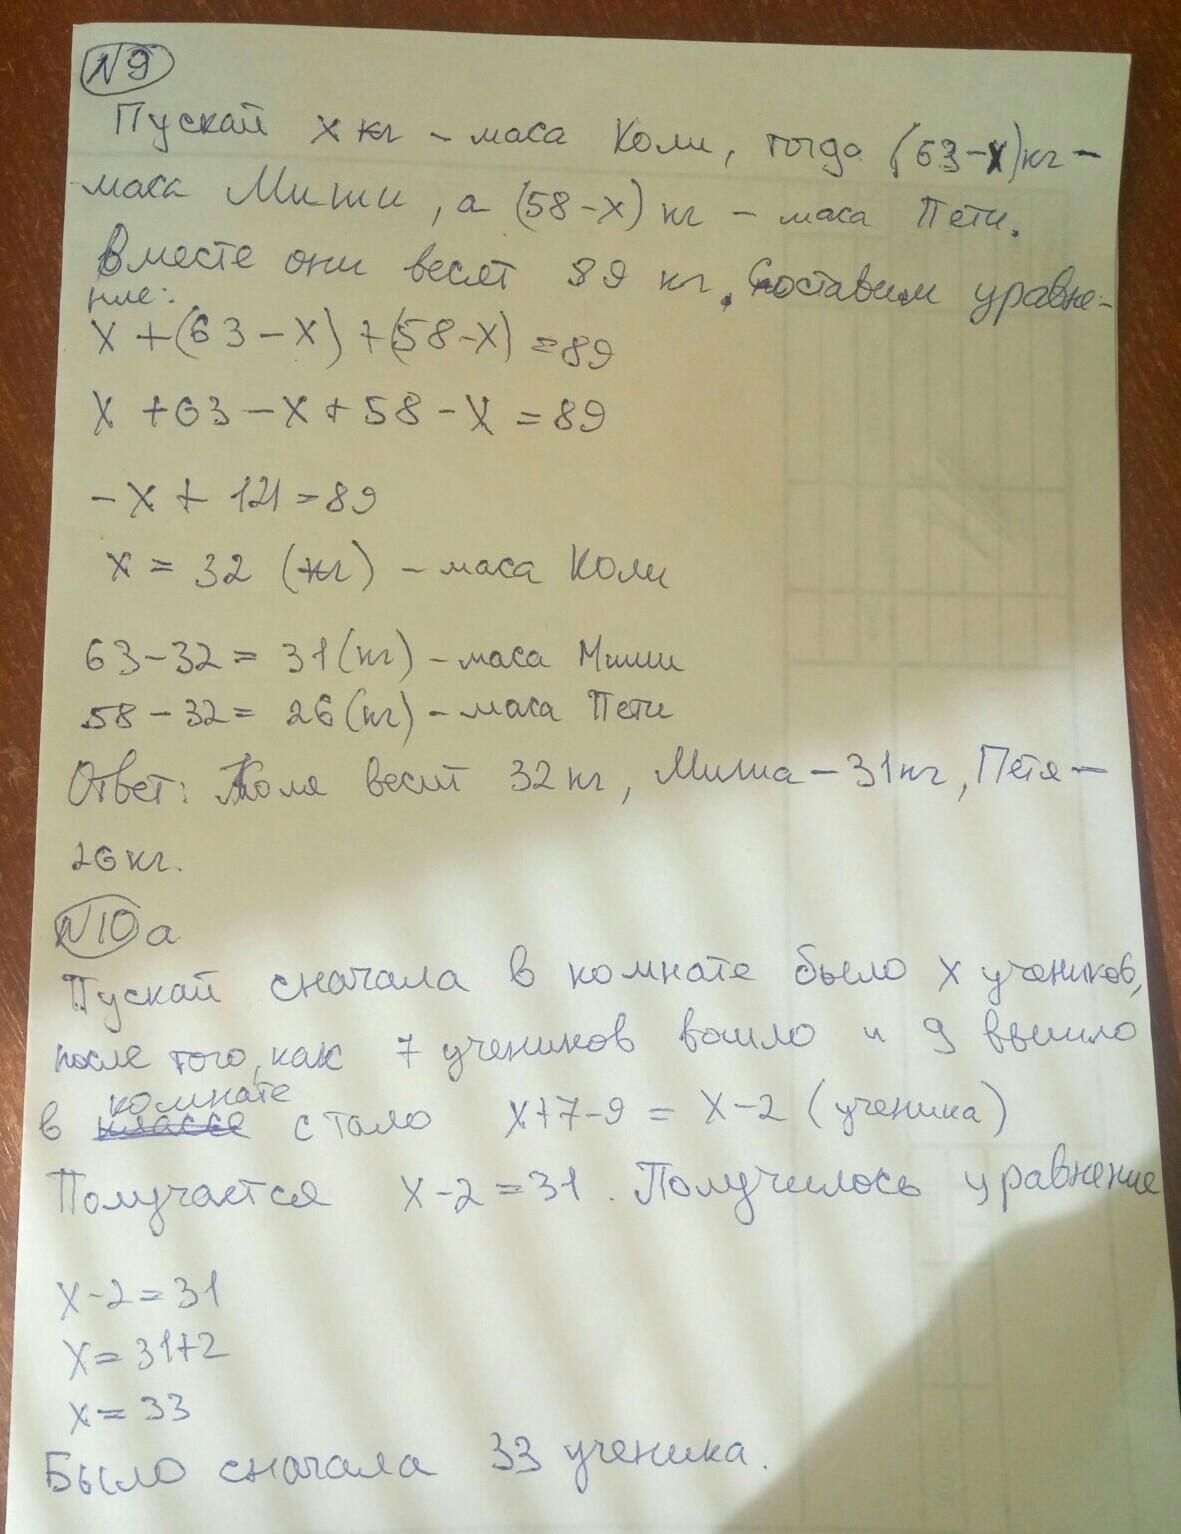 N9
Пускай x кг - маса Коли, тогда (63-x)кг -
маса Миши, а (58-x) кг - маса Пети.
Вместе они весят 89 кг. Составим уравне-
ние:
x + (63 - x) + (58-x) = 89
x + 63 - x + 58 - x = 89
- x + 121 = 89
x = 32 (кг) - маса Коли
63 - 32 = 31 (кг) - маса Миши
58 - 32 = 26 (кг) - маса Пети
Ответ: Коля весит 32 кг, Миша - 31 кг, Петя -
26 кг.
N10 а
Пускай сначала в комнате было x учеников,
после того, как 7 учеников вошло и 9 вышло
в классе комнате стало x+7-9 = x-2 (ученика)
Получается x-2=31. Получилось уравнение
x-2=31
x=31+2
x=33
Было сначала 33 ученика.